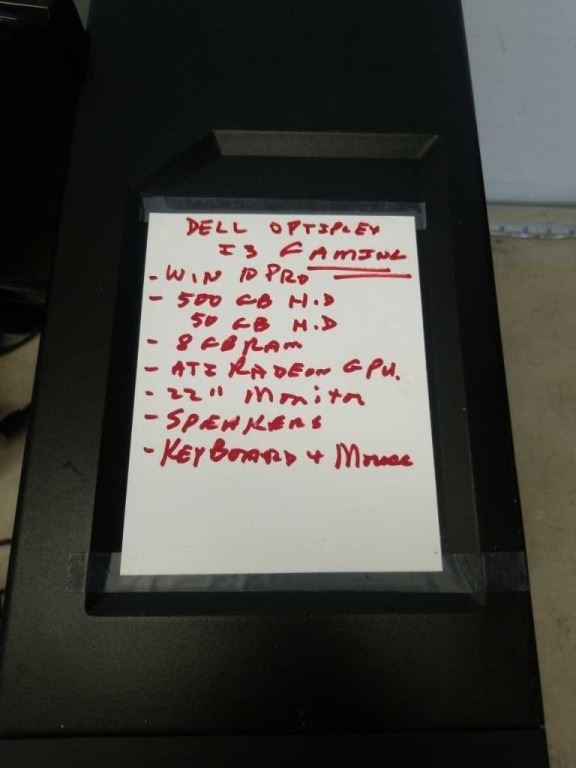 DELL OPTIPLEX
I3 GAMING
- WIN 10 PRO
- 500 GB H.D
50 GB H.D
- 8 GB RAM
- ATI RADEON GPU.
- 22" Monitor
- SPEAKERS
- KEYBOARD + Mouse